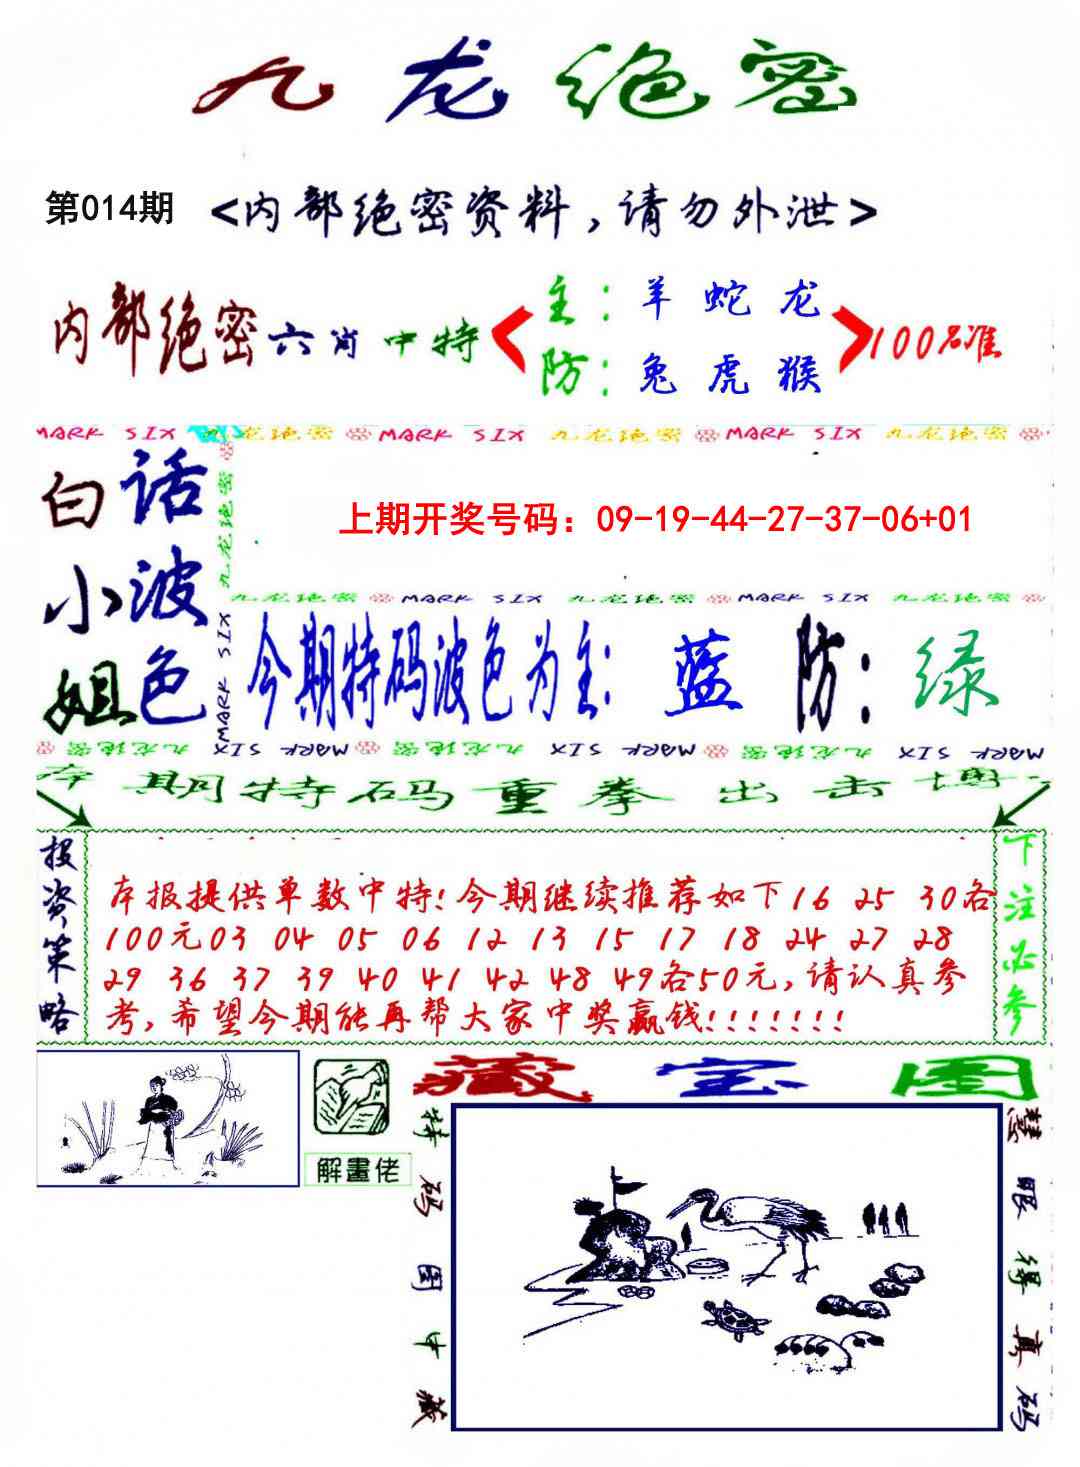 九龙绝密
第014期 <内部绝密资料,请勿外泄>
内部绝密六肖中特 主:羊 蛇 龙
防:兔 虎 猴 100%准
MARK SIX 九龙绝密 MARK SIX 九龙绝密 MARK SIX 九龙绝密
白小姐
话波色
九龙绝密 MARK SIX
上期开奖号码：09-19-44-27-37-06+01
九龙绝密 MARK SIX 九龙绝密 MARK SIX 九龙绝密
今期特码波色为主: 蓝 防: 绿
九龙绝密 MARK SIX 九龙绝密 MARK SIX 九龙绝密 MARK SIX
本期特码重拳出击博
投资策略
本报提供单数中特!今期继续推荐如下16 25 30各
100元03 04 05 06 12 13 15 17 18 24 27 28
29 36 37 39 40 41 42 48 49各50元,请认真参
考,希望今期能再帮大家中奖赢钱!!!!!!!
下注必参
解畫佬
藏宝图
特码图中藏
慧眼得真码